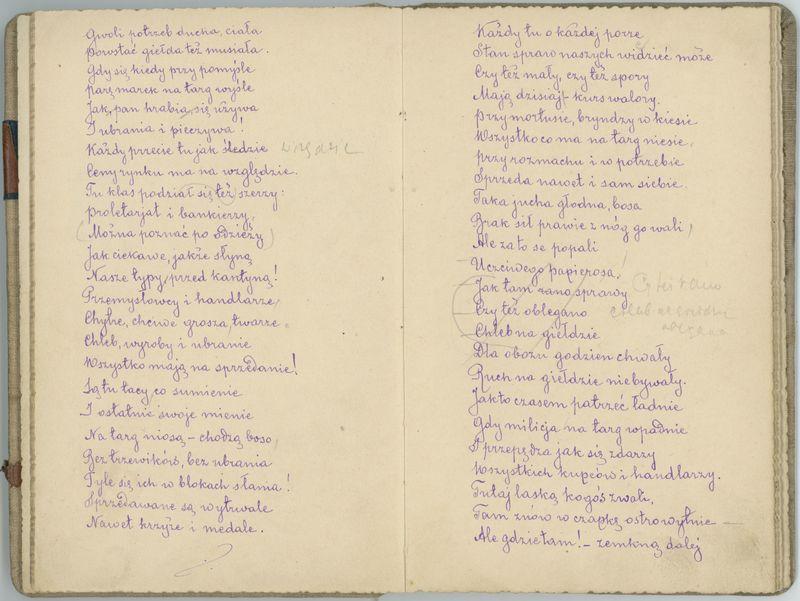 Gwoli potrzeb ducha, ciała
Powstać giełda też musiała.
Gdy się kiedy przy pomyśle
parę marek na targ wyśle
Jak, pan hrabia, się używa
I ubrania i pieczywa!
Każdy przecie tu jak śledzie
Ceny rynku ma na względzie.
Tu klas podział się też szerzy:
Proletarjat i bankierzy,
(Można poznać po odzieży)
Jak ciekawe, jakże słyną
Nasze typy przed kantyną!
Przemysłowcy i handlarze,
Chytre, chciwe grosza twarze.
Chleb, wyroby i ubranie
Wszystko mają na sprzedanie!
Są tu tacy co sumienie
I ostatnie swoje mienie
Na targ niosą – chodzą boso,
Bez trzewików, bez ubrania
Tyle się ich w blokach słania!
Sprzedawane są wytrwale
Nawet krzyże i medale.
Każdy tu o każdej porze
Stan spraw naszych widzieć może
Czy też mały, czy też spory
Mają dzisiaj – kurs walory.
Przy mortusie, bryndzy w kiesie
Wszystko co ma na targ niesie,
Przy rozmachu i w potrzebie
Sprzeda nawet i sam siebie.
Taka jucha głodna, bosa
Brak sił prawie z nóg go wali,
Ale za to se popali
Uczciwego papierosa!
Jak tam rano sprawy
Czy też oblegano
Chleb na giełdzie
Dla obozu godzien chwały
Ruch na giełdzie niebywały.
Jak to czasem patrzeć ładnie
Gdy milicja na targ wpadnie
I przepędza jak się zdarzy
Wszystkich kupców i handlarzy.
Tutaj laską kogoś zwali,
Tam znów w czapkę ostro wytnie –
Ale gdzie tam! – zemkną dalej